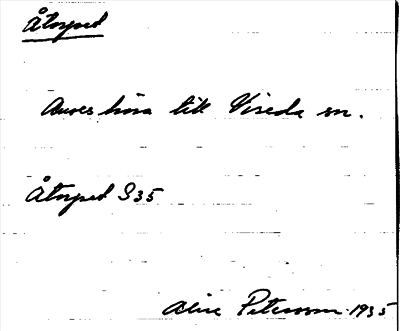 Åtorped
Anses höra till Virseda sn.
Åtorped S35
Aline Petersson 1935